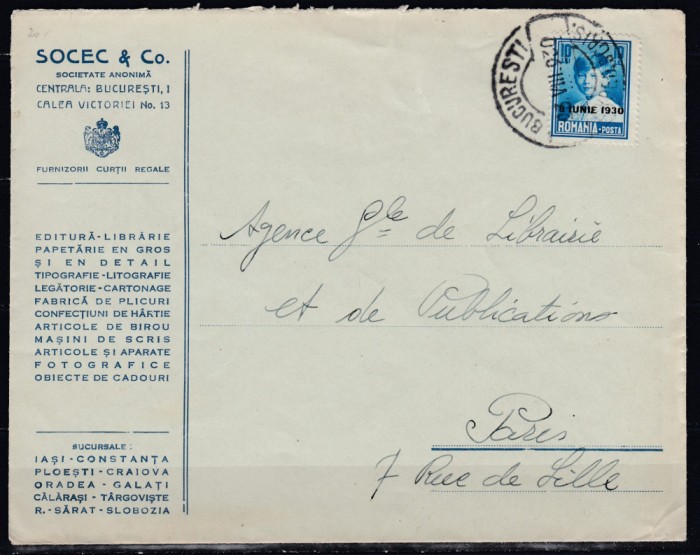 SOCEC & Co.
SOCIETATE ANONIMĂ
CENTRALA: BUCUREȘTI, I
CALEA VICTORIEI No. 13
FURNIZORII CURȚII REGALE
EDITURĂ-LIBRĂRIE
PAPETĂRIE EN GROS
ȘI EN DETAIL
TIPOGRAFIE-LITOGRAFIE
LEGĂTORIE-CARTONAGE
FABRICĂ DE PLICURI
CONFECȚIUNI DE HÂRTIE
ARTICOLE DE BIROU
MAȘINI DE SCRIS
ARTICOLE ȘI APARATE
FOTOGRAFICE
OBIECTE DE CADOURI
SUCURSALE:
IAȘI-CONSTANȚA
PLOEȘTI-CRAIOVA
ORADEA-GALAȚI
CĂLĂRAȘI-TÂRGOVIȘTE
R.-SĂRAT-SLOBOZIA
BUCURESTI
8 IUNIE 1930
ROMANIA-POSTA
Agence Gle de Librairie
et de Publications
Paris
7 Rue de Lille